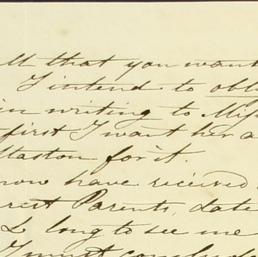 ll that you want
I intend to obl
in writing to Miss
first I want her a
for it.
now have received
rest Parents, date
& long to see me
I must conclude